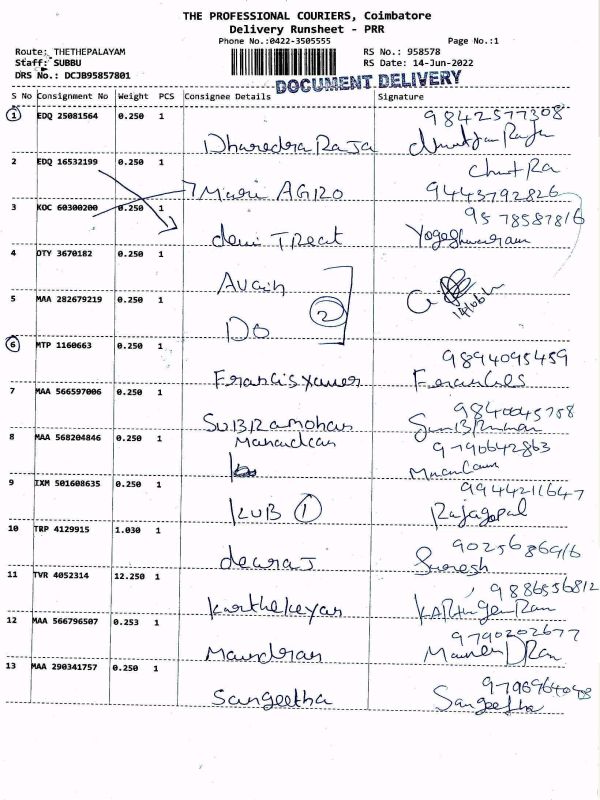 THE PROFESSIONAL COURIERS, Coimbatore
Delivery Runsheet - PRR
Phone No.:0422-3505555 Page No.:1
Route: THETHEPALAYAM RS No.: 958578
Staff: SUBBU RS Date: 14-Jun-2022
DRS No.: DCJB95857801
DOCUMENT DELIVERY
S No Consignment No Weight PCS Consignee Details Signature
1 EDQ 25081564 0.250 1 9842577308
Dharedra RaJa
2 EDQ 16532199 0.250 1
Mari AGRO 9443792826
3 KOC 60300200 0.250 1 9578587816
devi TReat Yogeshwaram
4 OTY 3670182 0.250 1
Avain
5 MAA 282679219 0.250 1 2
DO
6 MTP 1160663 0.250 1 9894095459
Francis Xavier
7 MAA 566597006 0.250 1
SUBRamohan
8 MAA 568204846 0.250 1 9790642863
9 IXM 501608635 0.250 1 9944211647
KUB 1 Rajagopal
10 TRP 4129915 1.030 1 9025686916
devraj Suresh
11 TVR 4052314 12.250 1 9886556812
Karthekeyan
12 MAA 566796507 0.253 1 9790202677
13 MAA 290341757 0.250 1
Sangeetha Sangeetha